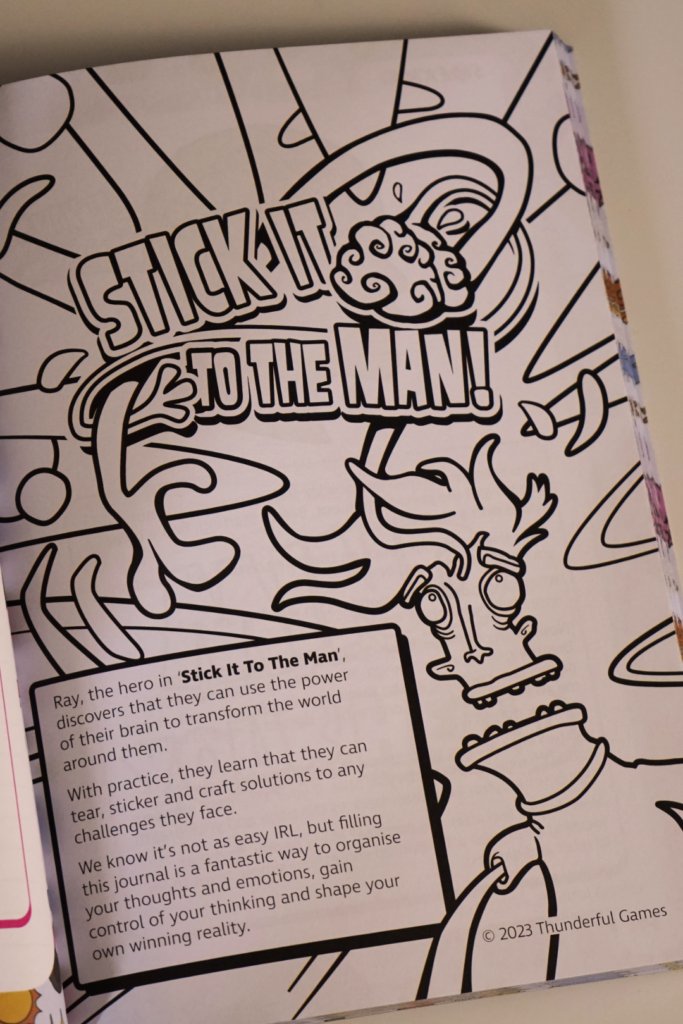 STICK IT
TO THE MAN!
Ray, the hero in 'Stick It To The Man',
discovers that they can use the power
of their brain to transform the world
around them.
With practice, they learn that they can
tear, sticker and craft solutions to any
challenges they face.
We know it's not as easy IRL, but filling
this journal is a fantastic way to organise
your thoughts and emotions, gain
control of your thinking and shape your
own winning reality.
© 2023 Thunderful Games